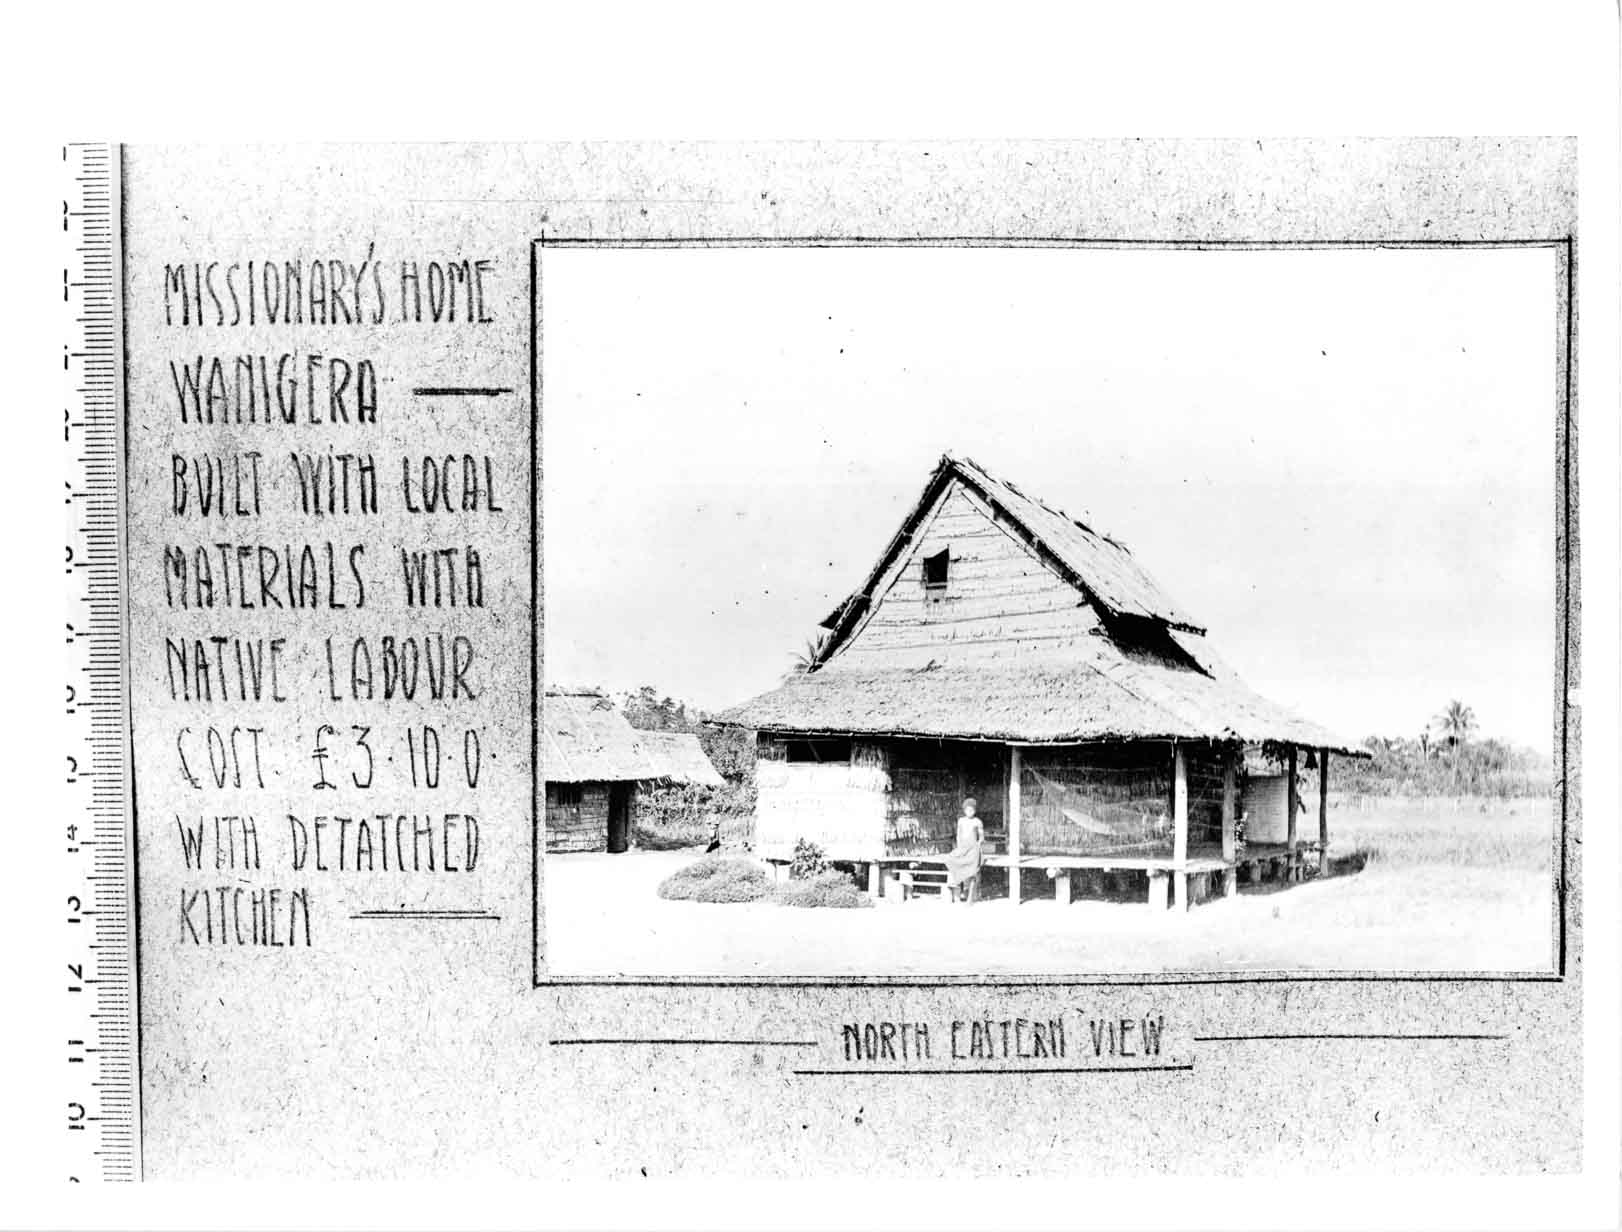 MISSIONARY'S HOME
WANIGERA
BUILT WITH LOCAL
MATERIALS WITH
NATIVE LABOUR
COST £3·10·0·
WITH DETATCHED
KITCHEN
NORTH EASTERN VIEW
14
13
12
11
10